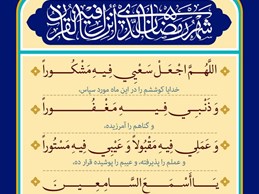 شهر رمضان الذی أنزل فیه القرآن
اَللّهُمَّ اجْعَلْ سَعْیی فیهِ مَشْکُوراً
خدایا کوششم را در این ماه مورد سپاس،
وَ ذَنْبی فیهِ مَغْفُوراً
و گناهم را آمرزیده،
وَ عَمَلی فیهِ مَقْبُولاً وَ عَیْبی فیهِ مَسْتُوراً
و عملم را پذیرفته، و عیبم را پوشیده قرار ده،
یَا أَسْمَعَ السَّامِعِینَ